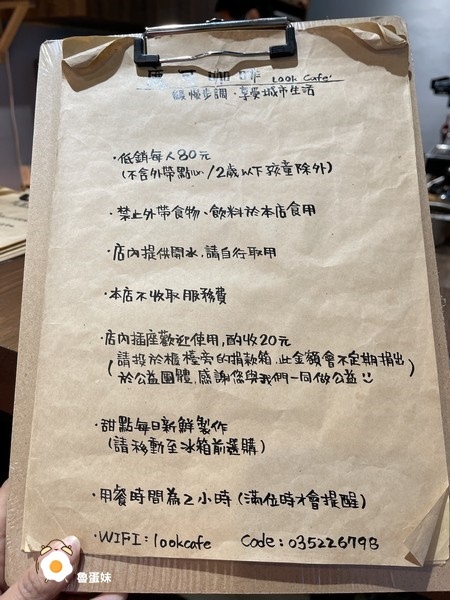 咖啡 Look Cafe'
緩慢步調．享受城市生活
·低銷每人80元
(不含外帶點心/12歲以下孩童除外)
·禁止外帶食物、飲料於本店食用
·店內提供開水.請自行取用
·本店不收取服務費
·店內插座歡迎使用,酌收20元
(請投於櫃檯旁的捐款箱.此金額會不定期捐出)
於公益團體.感謝您與我們一同做公益
·甜點每日新鮮製作
(請移動至冰箱前選購)
·用餐時間為2小時(滿位時才會提醒)
·WIFI:lookcafe Code:035226798
魯蛋妹